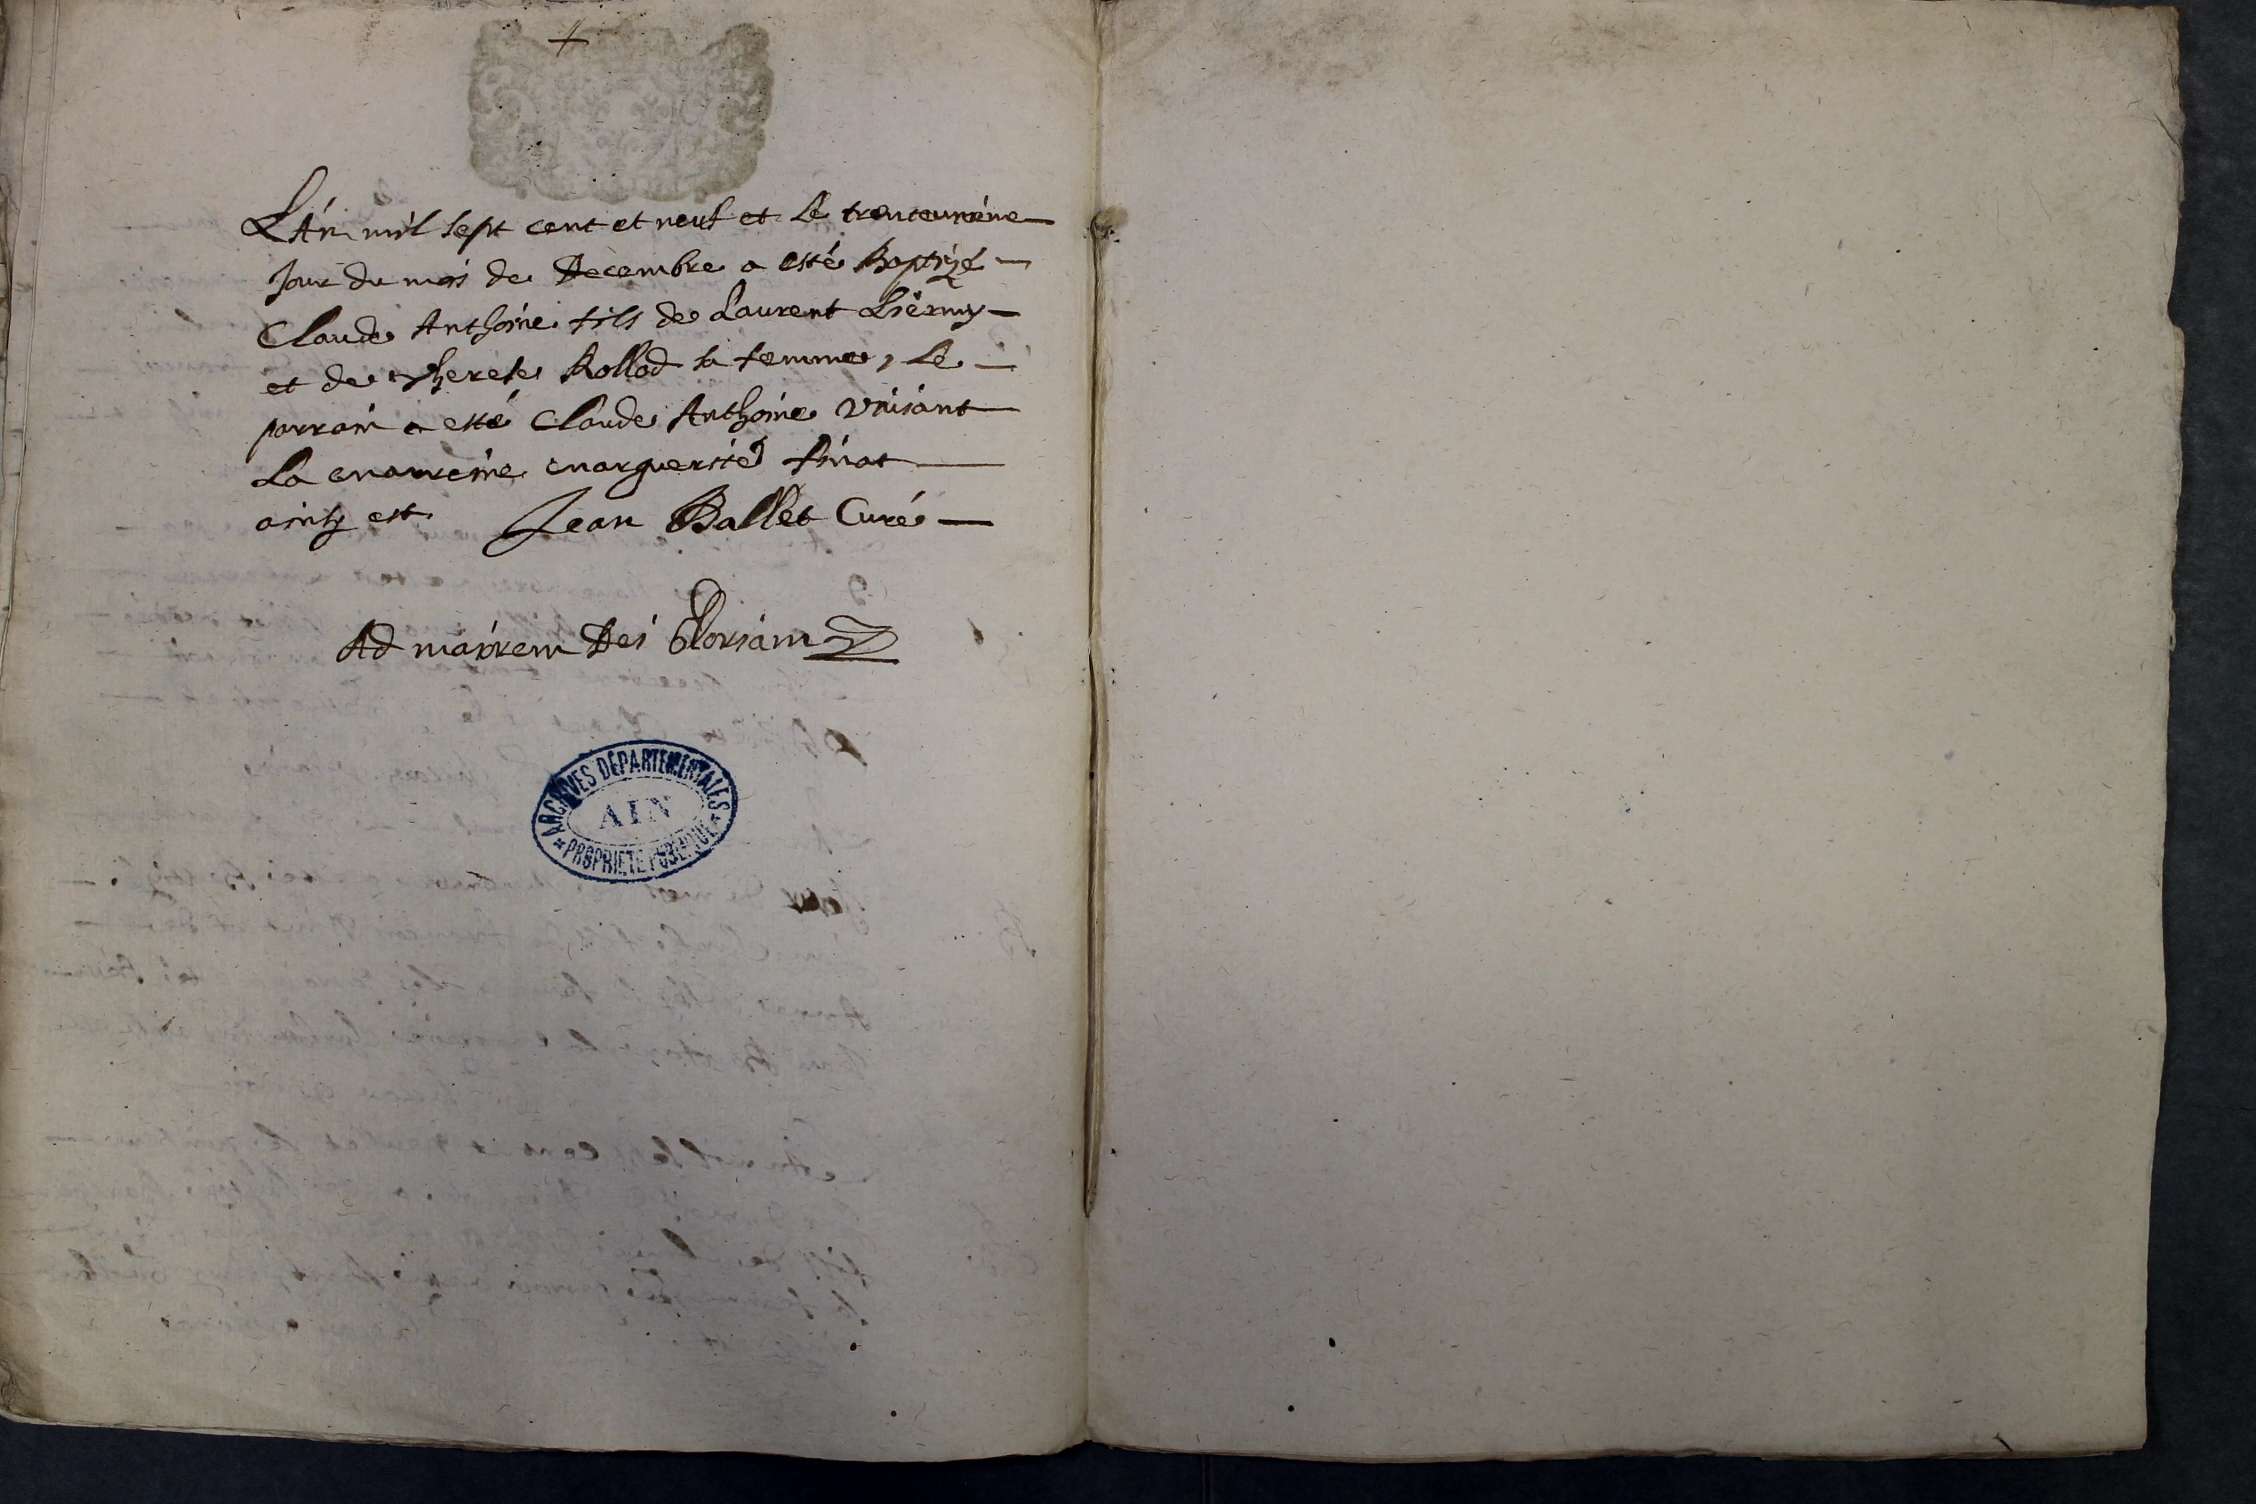 L'An mil sept cent et neuf et le trenteunième
Jour du mois de Decembre a esté Baptizé
Claude Anthoine fils de Laurent Liermy
et de Therese Rollod sa femme, le
parrain a esté Claude Anthoine
La marreine marguerite
ainsy est Jean Ballet Curé
Ad maiorem Dei Gloriam
ARCHIVES DÉPARTEMENTALES
AIN
PROPRIÉTÉ PUBLIQUE